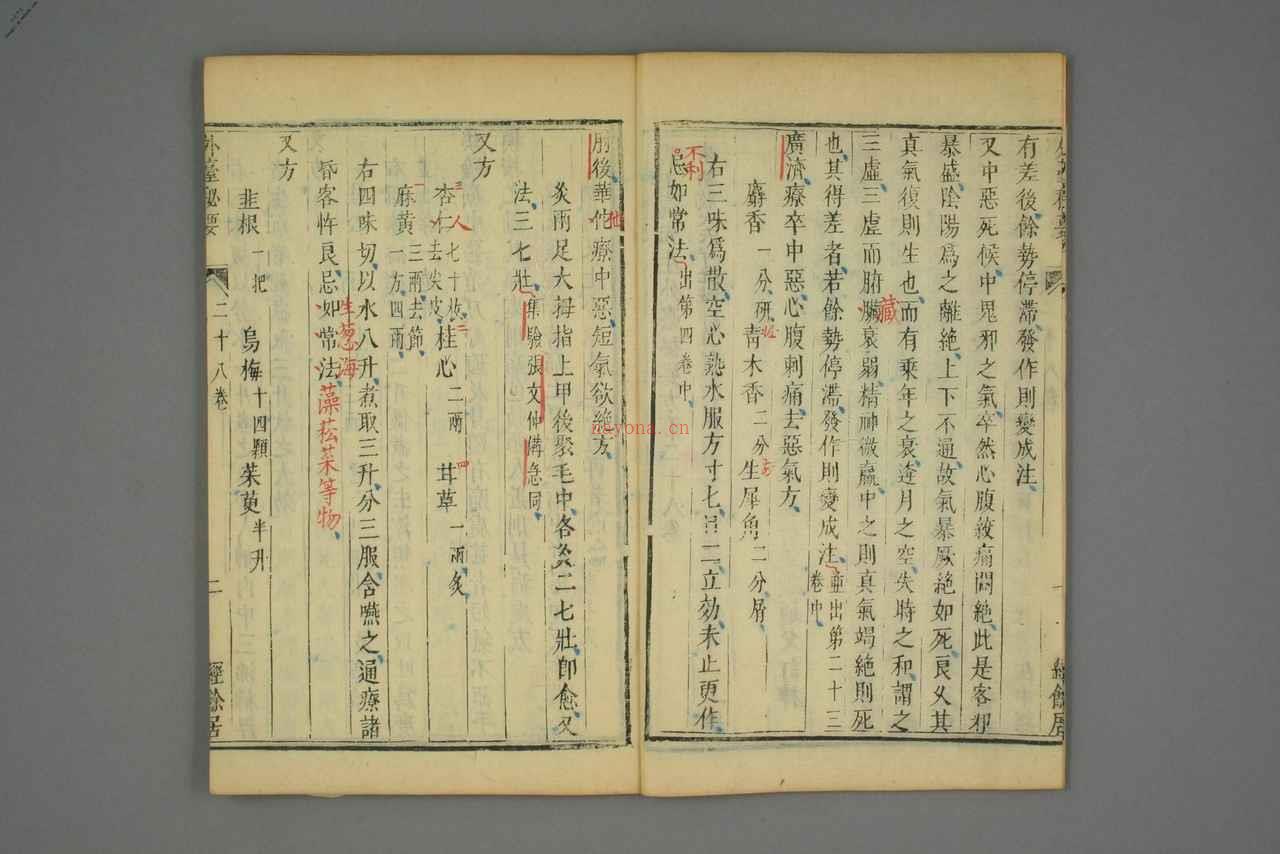 有差後餘勢停滯發作則變成注
又中惡死候中鬼邪之氣卒然心腹絞痛悶絕此是客邪
暴盛陰陽爲之離絕上下不通故氣暴厥絕如死良久其
真氣復則生也而有乘年之衰逢月之空失時之和謂之
三虛三虛而腑臟衰弱精神微羸中之則真氣竭絕則死
藏
也其得差者若餘勢停滯發作則變成注並出第二十三卷中
廣濟療卒中惡心腹刺痛去惡氣方
麝香一分研青木香二分生犀角二分屑
右三味爲散空心熟水服方寸匕日二立効未止更作
不利
忌如常法出第四卷中
經餘居
肘後華佗療中惡短氣欲絕方
他
灸兩足大拇指上甲後聚毛中各灸二七壯即愈又
法三七壯集驗張文仲備急同
又方
三杏仁七十枚去尖皮二桂心二兩四甘草一兩炙
人
一麻黃三兩去節一方四兩
右四味切以水八升煮取三升分三服含嚥之通療諸
昏客忤良忌如常法
生葱海藻菘菜等物
又方
韭根一把烏梅十四顆茱萸半升
外臺秘要 二十八卷 二 經餘居
nayona.cn